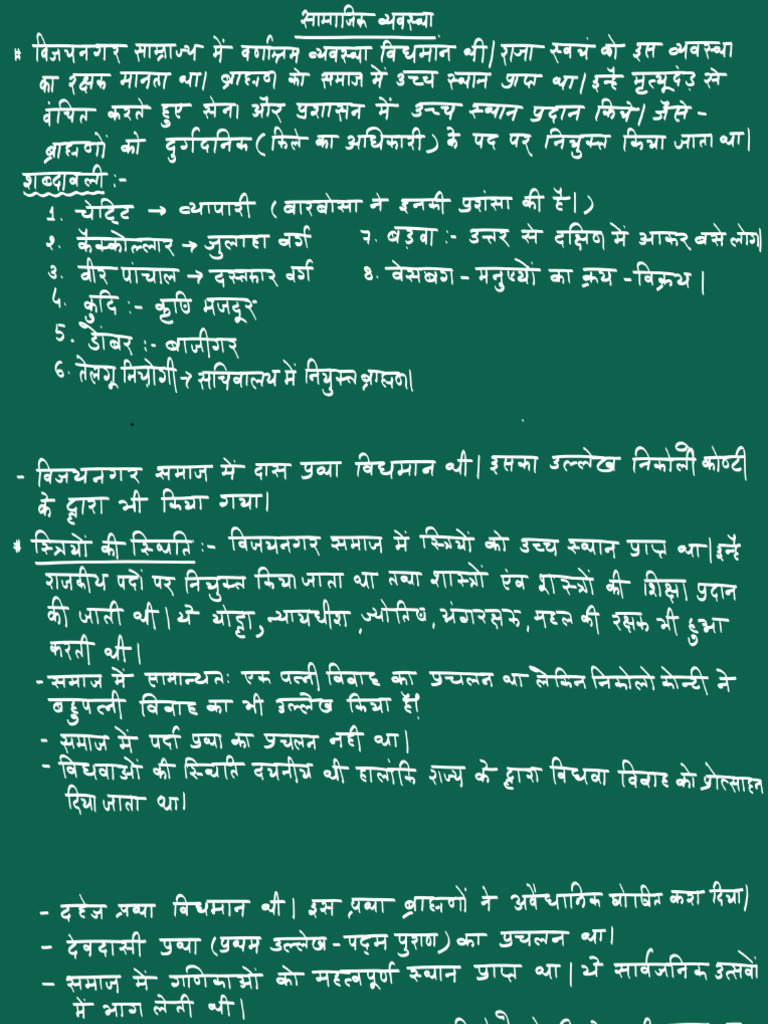 सामाजिक व्यवस्था
* विजयनगर साम्राज्य में वर्णाश्रम व्यवस्था विधमान थी। राजा स्वयं को इस व्यवस्था
का रक्षक मानता था। ब्राह्मण को समाज में उच्च स्थान प्राप्त था। इन्हें मृत्यूदंड से
वंचित करते हुए सेना और प्रशासन में उच्च स्थान प्रदान किये। जैसे -
ब्राह्मणों को दुर्गदनिक (किले का अधिकारी) के पद पर नियुक्त किया जाता था।
शब्दावली :-
1. चेट्टि → व्यापारी (बारबोसा ने इनकी प्रशंसा की है।)
2. कैस्कोल्लार → जुलाहा वर्ग 7. बडवा :- उत्तर से दक्षिण में आकर बसे लोग।
3. वीर पांचाल → दस्तकार वर्ग 8. वेसबग - मनुष्यों का क्रय -विक्रय।
4. कुदि :- कृषि मजदूर
5. डोंबर :- बाजीगर
6. तेलगू नियोगी → सचिवालय में नियुक्त ब्राह्मण।
- विजयनगर समाज में दास प्रथा विधमान थी। इसका उल्लेख निकोलो कोण्टी
के द्वारा भी किया गया।
* स्त्रियों की स्थिति :- विजयनगर समाज में स्त्रियों को उच्च स्थान प्राप्त था। इन्हें
राजकीय पदों पर नियुक्त किया जाता था तथा शास्त्रों एंव शस्त्रों की शिक्षा प्रदान
की जाती थी। ये योद्धा, न्यायधीश, ज्योतिष, अंगरक्षक, महल की रक्षक भी हुआ
करती थी।
- समाज में सामान्यतः एक पत्नी विवाह का प्रचलन था लेकिन निकोलो कोन्टी ने
बहुपत्नी विवाह का भी उल्लेख किया है।
- समाज में पर्दा प्रथा का प्रचलन नही था।
- विधवाओं की स्थिति दयनीय थी हालांकि राज्य के द्वारा विधवा विवाह को प्रोत्साहन
दिया जाता था।
- दहेज प्रथा विधमान थी। इस प्रथा ब्राह्मणों ने अवैधानिक घोषित करा दिया।
- देवदासी प्रथा (प्रथम उल्लेख - पद्म पुराण) का प्रचलन था।
- समाज में गणिकाओं को महत्वपूर्ण स्थान प्राप्त था। ये सार्वजनिक उत्सवों
में भाग लेती थी।